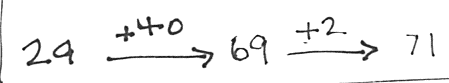 29 +40 → 69 +2 → 71